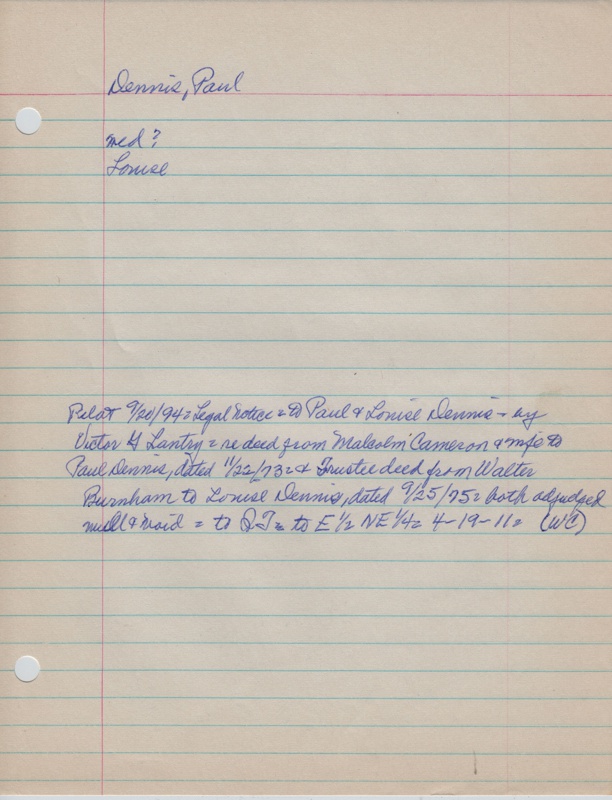 Dennis, Paul
med?
Louise
Pilot 9/20/94 = Legal notice = to Paul & Louise Dennis - by
Victor H Lantry = re deed from Malcolm Cameron & wife to
Paul Dennis, dated 11/22/73 = & Trustee deed from Walter
Burnham to Louise Dennis, dated 9/25/75 = both adjudged
null & void = to Q T = to E 1/2 NE 1/4 = 4-19-11 = (WC)